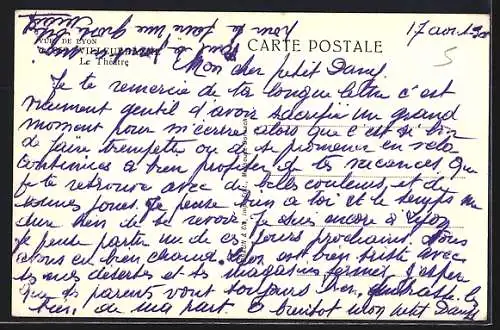 CARTE POSTALE
17 août 1930
VUES DE LYON
VILLEURBANNE
Le Théâtre
Mon cher petit Dany.
Je te remercie de ta longue lettre c'est
vraiment gentil d'avoir sacrifié un grand
moment pour m'écrire alors que c'est si bon
de faire trempette ou de se promener en vélo
continues à bien profiter de tes vacances. Que
je te retrouve avec de belles couleurs et de
bonnes joues. Je pense bien à toi et le temps me
dure bien de te revoir. Je suis encore à Lyon
je pense partir un de ces jours prochains. Nous
avons eu bien chaud. Lyon est bien triste avec
ses rues désertes et ses magasins fermés. J'espère
que tes parents vont toujours bien.
de ma part. À bientôt mon petit Dany